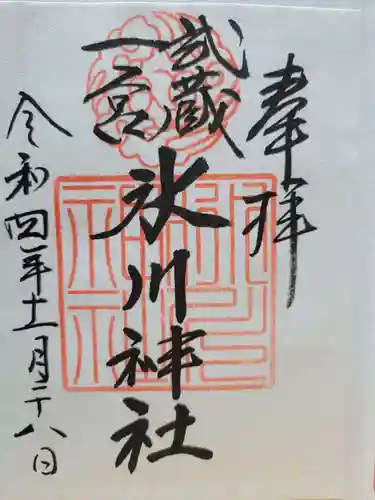 奉拝
武蔵
一宮
氷川神社
令和四年十一月二十八日